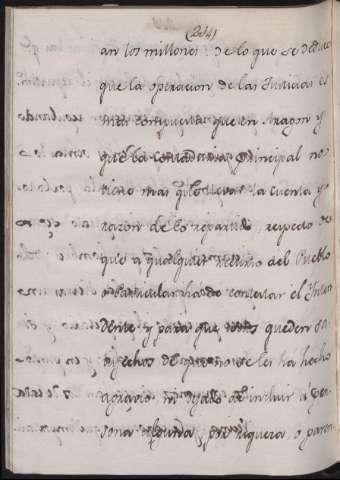 (214)
an los millones: de lo que se deduce
que la operacion de las Justicias es
mas continuada que en Aragon y
que la contaduria principal no
tiene mas q.e llevar la cuenta y
razon de lo repartido, respecto de
que a qualquier recurso del Pueblo
o Particular ha de contestar el Inten
dente y para que todos queden sa
tisfechos de que no se les ha hecho
agravio ni dejado de incluir á per
sona alguna, por riqueza, o paren